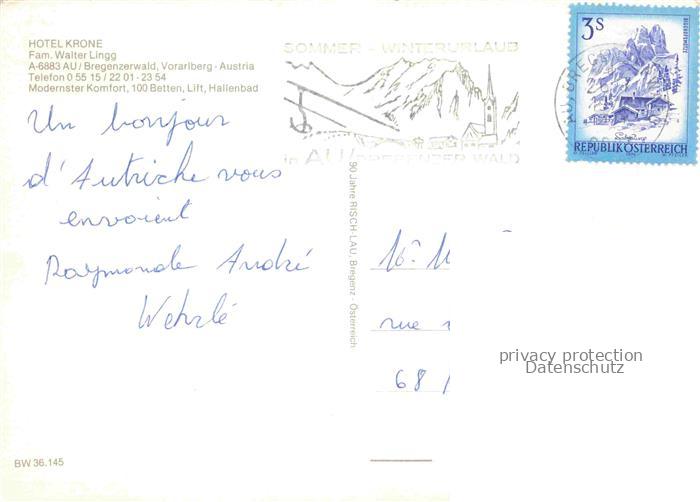 HOTEL KRONE
Fam. Walter Lingg
A-6883 AU / Bregenzerwald, Vorarlberg - Austria
Telefon 0 55 15 / 22 01 - 23 54
Modernster Komfort, 100 Betten, Lift, Hallenbad
SOMMER - WINTERURLAUB
in AU/BREGENZER WALD
3 S
REPUBLIK ÖSTERREICH
Un bonjour
d'Autriche vous
envoient
Raymonde André
Wehrlé
90 Jahre RISCH-LAU, Bregenz - Österreich
rue
68
privacy protection
Datenschutz
BW 36.145